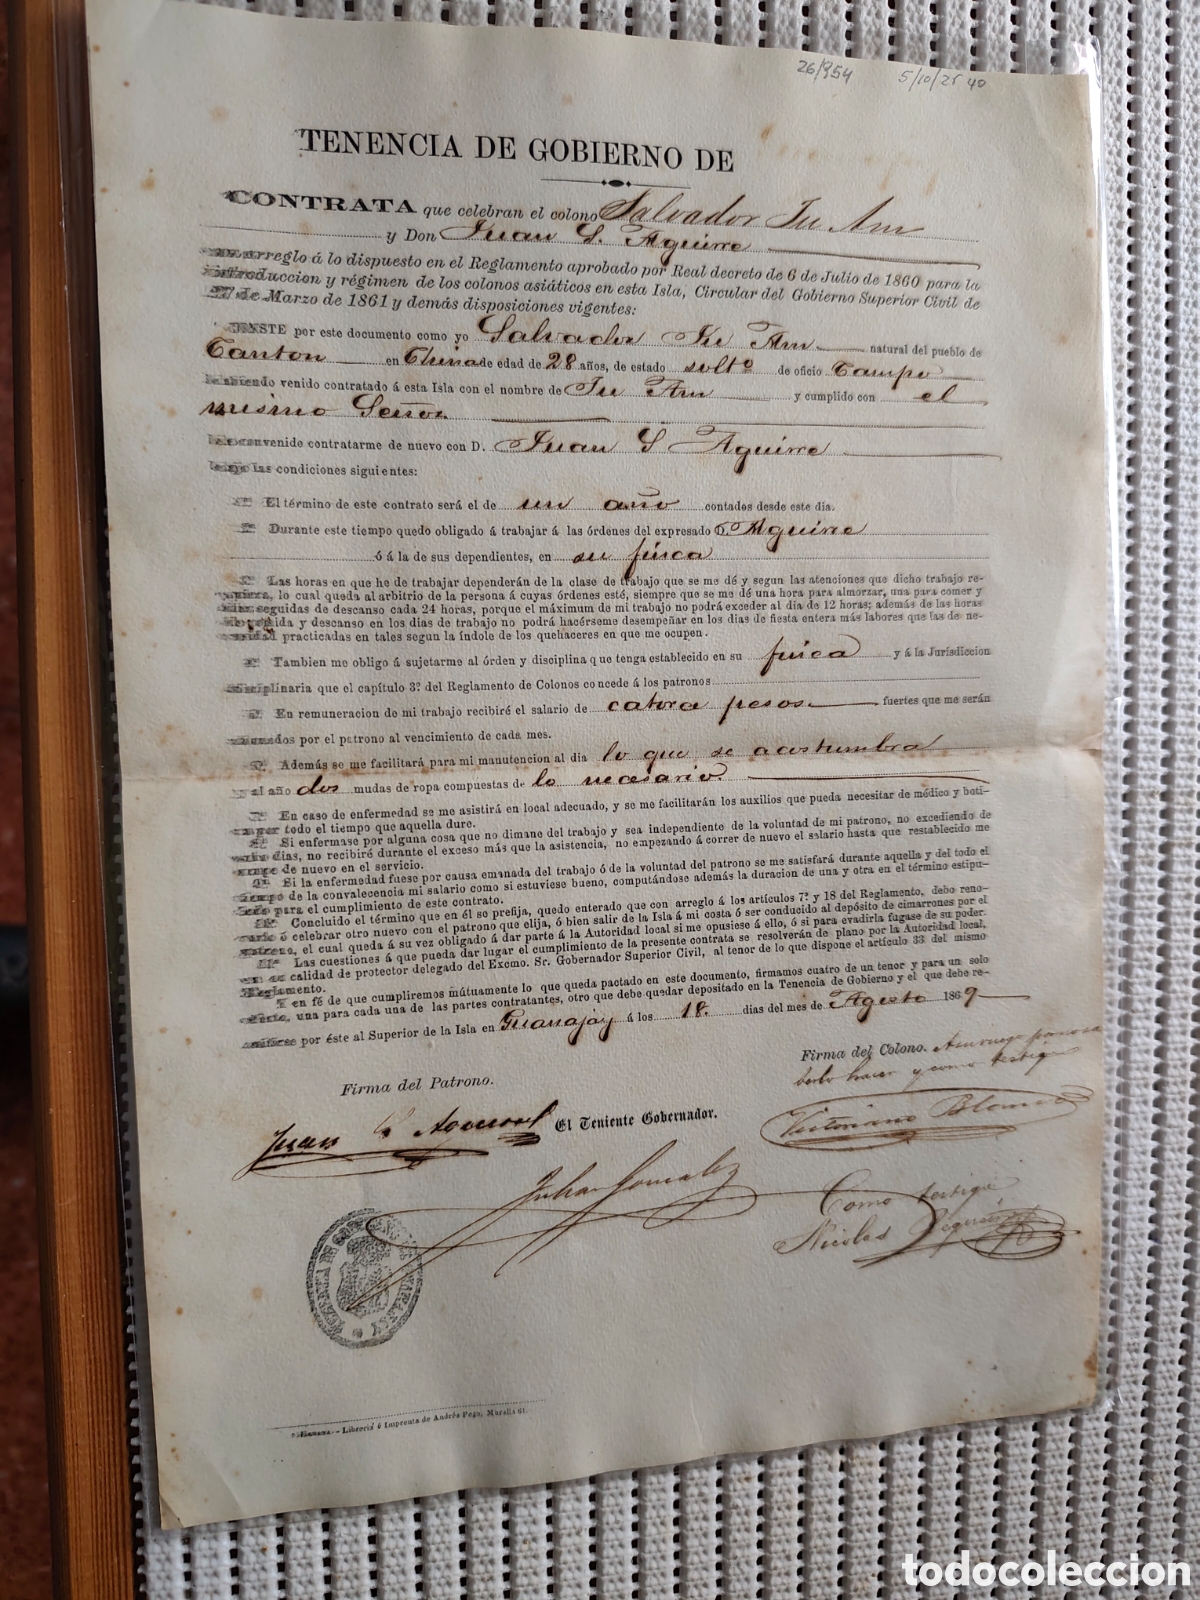 26/954 5/10/25 40
TENENCIA DE GOBIERNO DE
CONTRATA que celebran el colono Salvador Ju Am
y Don Juan S. Aguirre
con arreglo á lo dispuesto en el Reglamento aprobado por Real decreto de 6 de Julio de 1860 para la
introduccion y régimen de los colonos asiáticos en esta Isla, Circular del Gobierno Superior Civil de
27 de Marzo de 1861 y demás disposiciones vigentes:
CONSTE por este documento como yo Salvador Ju Am natural del pueblo de
Canton en China de edad de 28 años, de estado solt.o de oficio Campo
habiendo venido contratado á esta Isla con el nombre de Ju Am y cumplido con el
mismo Señor
he convenido contratarme de nuevo con D. Juan S Aguirre
bajo las condiciones siguientes:
1.ª El término de este contrato será el de un año contados desde este dia.
2.ª Durante este tiempo quedo obligado á trabajar á las órdenes del expresado D. Aguirre
ó á la de sus dependientes, en su finca
3.ª Las horas en que he de trabajar dependerán de la clase de trabajo que se me dé y segun las atenciones que dicho trabajo re-
quiera, lo cual queda al arbitrio de la persona á cuyas órdenes esté, siempre que se me dé una hora para almorzar, una para comer y
seguidas de descanso cada 24 horas, porque el máximum de mi trabajo no podrá exceder al dia de 12 horas; además de las horas
de comida y descanso en los dias de trabajo no podrá hacérseme desempeñar en los dias de fiesta entera más labores que las de ne-
cesidad practicadas en tales segun la índole de los quehaceres en que me ocupen.
4.ª Tambien me obligo á sujetarme al órden y disciplina que tenga establecido en su finca y á la Jurisdiccion
disciplinaria que el capítulo 3º. del Reglamento de Colonos concede á los patronos
5.ª En remuneracion de mi trabajo recibiré el salario de catorce pesos fuertes que me serán
abonados por el patrono al vencimiento de cada mes.
6.ª Además se me facilitará para mi manutencion al dia lo que se acostumbra
y al año dos mudas de ropa compuestas de lo necesario.
7.ª En caso de enfermedad se me asistirá en local adecuado, y se me facilitarán los auxilios que pueda necesitar de médico y boti-
ca por todo el tiempo que aquella dure.
8.ª Si enfermase por alguna cosa que no dimane del trabajo y sea independiente de la voluntad de mi patrono, no excediendo de
dias, no recibiré durante el exceso más que la asistencia, no empezando á correr de nuevo el salario hasta que restablecido me
ocupe de nuevo en el servicio.
9.ª Si la enfermedad fuese por causa emanada del trabajo ó de la voluntad del patrono se me satisfará durante aquella y del todo el
tiempo de la convalecencia mi salario como si estuviese bueno, computándose además la duracion de una y otra en el término estipu-
lado para el cumplimiento de este contrato.
10.ª Concluido el término que en él se prefija, quedo enterado que con arreglo á los artículos 7º. y 18 del Reglamento, debo reno-
varlo ó celebrar otro nuevo con el patrono que elija, ó bien salir de la Isla á mi costa ó ser conducido al depósito de cimarrones por el
patrono, el cual queda á su vez obligado á dar parte á la Autoridad local si me opusiese á ello, ó si para evadirla fugase de su poder.
11.ª Las cuestiones á que pueda dar lugar el cumplimiento de la presente contrata se resolverán de plano por la Autoridad local,
en su calidad de protector delegado del Excmo. Sr. Gobernador Superior Civil, al tenor de lo que dispone el artículo 33 del mismo
Reglamento.
Y en fé de que cumpliremos mútuamente lo que queda pactado en este documento, firmamos cuatro de un tenor y para un solo
efecto, una para cada una de las partes contratantes, otro que debe quedar depositado en la Tenencia de Gobierno y el que debe re-
mitirse por éste al Superior de la Isla en Guanajay á los 18. dias del mes de Agosto 1869
Firma del Patrono.
Firma del Colono. A su ruego por no sa
berlo hacer y como testigo
Juan S Aguirre
El Teniente Gobernador.
Victoriano Blanco
Julian Gonzalez
Como testigo
Nicolas
HABANA.—Librería é Imprenta de Andrés Pego, Muralla 61.
todocoleccion